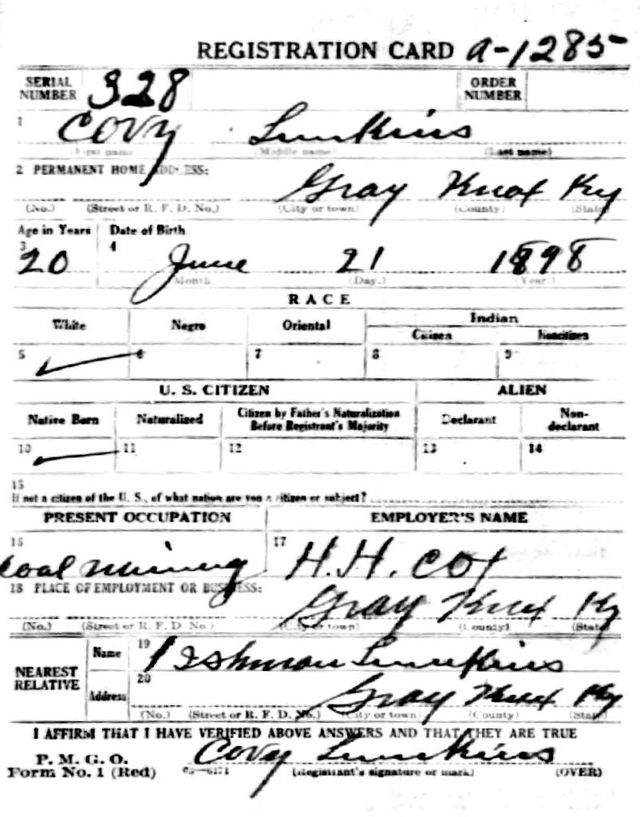 REGISTRATION CARD a-1285
SERIAL NUMBER 328 ORDER NUMBER
1 Covy Lumkins
(First name) (Middle name) (Last name)
2 PERMANENT HOME ADDRESS:
Gray Knox Ky
(No.) (Street or R. F. D. No.) (City or town) (County) (State)
Age in Years Date of Birth
3 20 4 June 21 1898
(Month) (Day.) (Year.)
RACE
White Negro Oriental Indian
Citizen Noncitizen
5 6 7 8 9
U. S. CITIZEN ALIEN
Native Born Naturalized Citizen by Father's Naturalization Before Registrant's Majority Declarant Non-declarant
10 11 12 13 14
15
If not a citizen of the U. S., of what nation are you a citizen or subject?
PRESENT OCCUPATION EMPLOYER'S NAME
16 17
coal mining H. H. Cox
18 PLACE OF EMPLOYMENT OR BUSINESS:
Gray Knox Ky
(No.) (Street or R. F. D. No.) (City or town) (County) (State)
NEAREST RELATIVE Name 19 Lumkins
Address 20 Gray Knox Ky
(No.) (Street or R. F. D. No.) (City or town) (County) (State)
I AFFIRM THAT I HAVE VERIFIED ABOVE ANSWERS AND THAT THEY ARE TRUE
P. M. G. O.
Form No. 1 (Red) 03—6171 Covy Lumkins
(Registrant's signature or mark) (OVER)